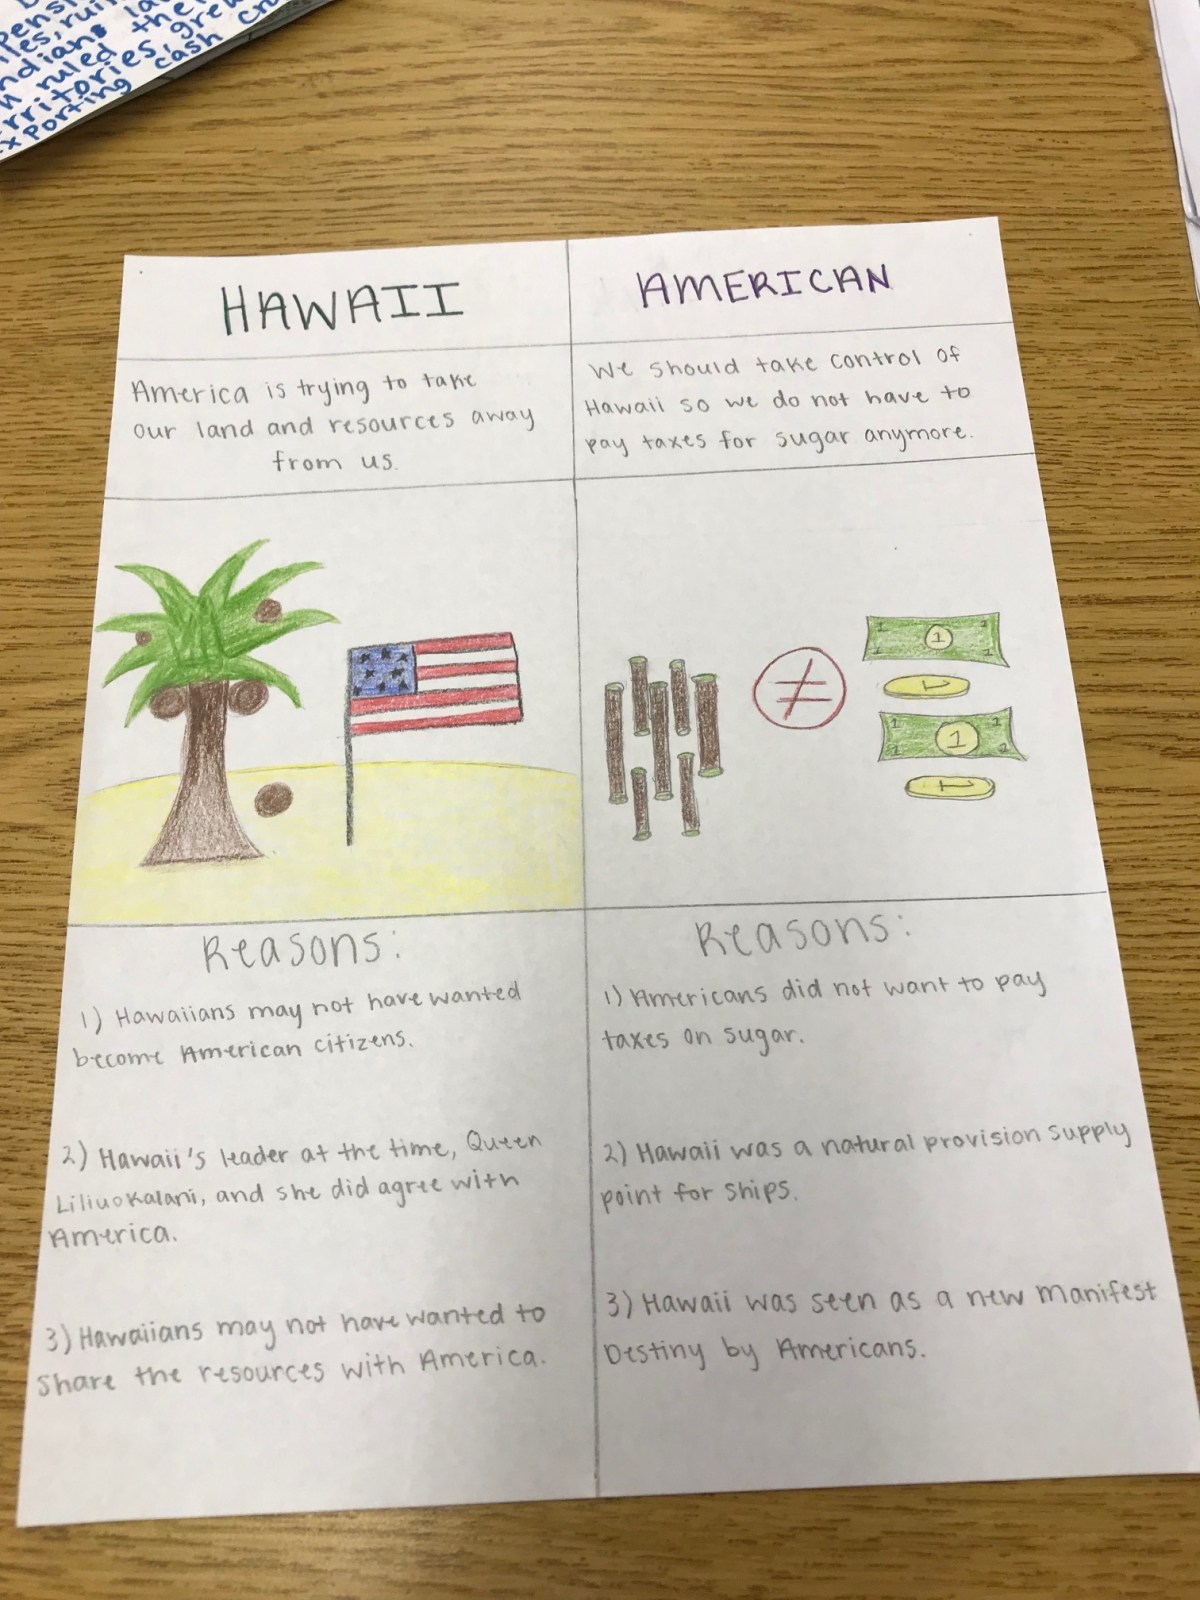 ruled the
territories, grew
exporting cash
HAWAII
America is trying to take
our land and resources away
from us.
AMERICAN
We should take control of
Hawaii so we do not have to
pay taxes for sugar anymore.
1 1
1
1 1
1
1 1
1
1 1
1
Reasons:
1) Hawaiians may not have wanted
become American citizens.
2) Hawaii's leader at the time, Queen
Liliuokalani, and she did agree with
America.
3) Hawaiians may not have wanted to
share the resources with America.
Reasons:
1) Americans did not want to pay
taxes on sugar.
2) Hawaii was a natural provision supply
point for ships.
3) Hawaii was seen as a new manifest
Destiny by Americans.